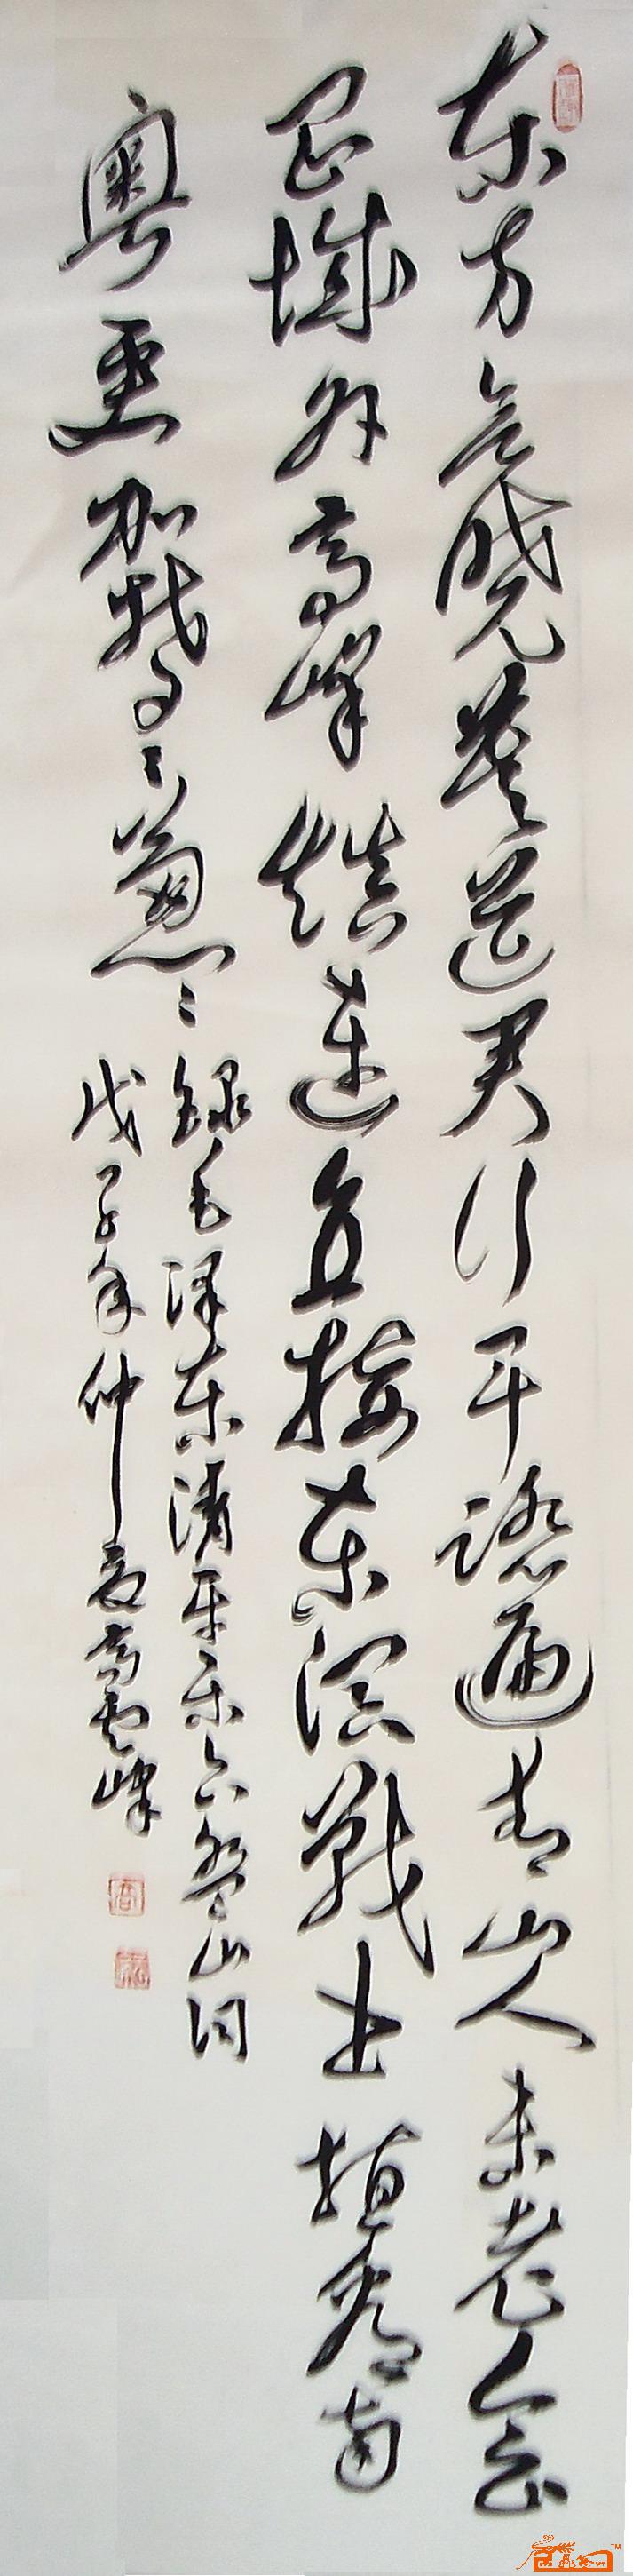 东方欲晓莫道君行早踏遍青山人未老会
昌城外高峰颠连直接东溟战士指看南
粤更加郁々葱々
录毛泽东清平乐六盘山词
戊子年仲夏高云峰